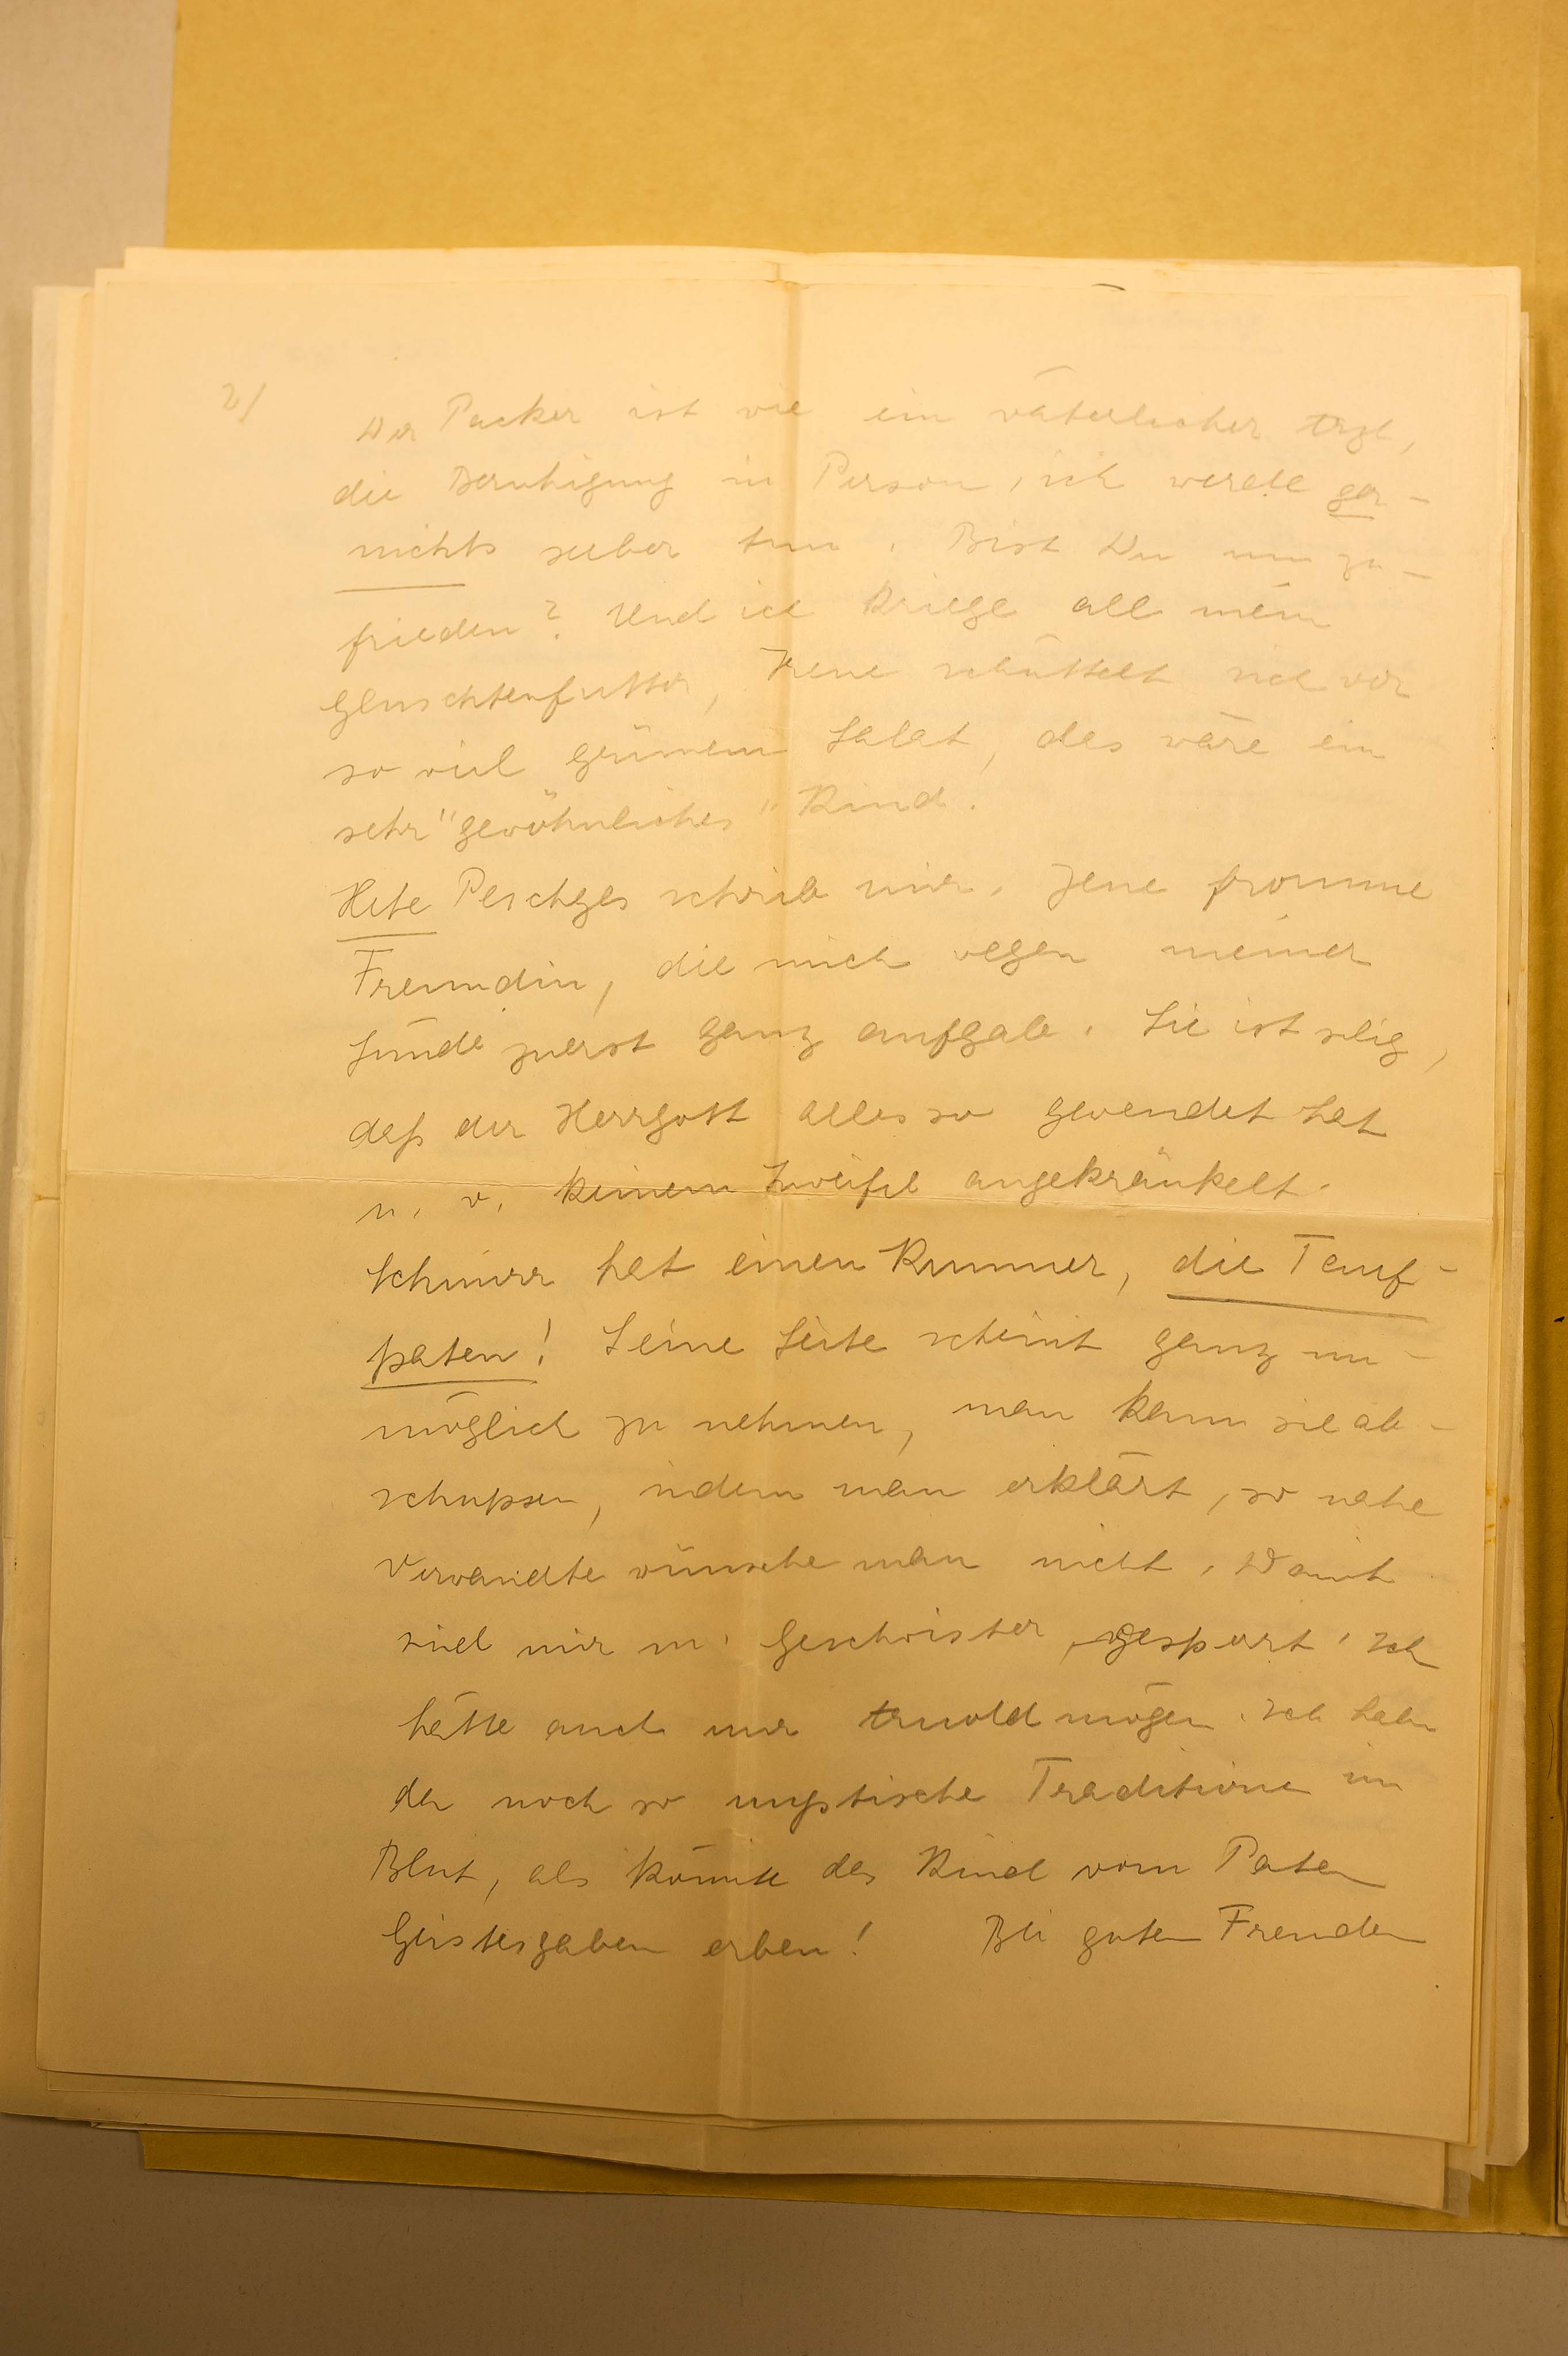 2/
Der Packer ist wie ein väterlicher Arzt,
die Beruhigung in Person, ich werde gar-
nichts selber tun. Bist Du nun zu-
frieden? Und ich kriege all mein
Gluschtenfutter, Irene schüttelt sich vor
so viel grünem Salat, das wäre ein
sehr "gewöhnliches" Kind.
Hete Peschges schrieb mir. Jene fromme
Freundin, die mich wegen meiner
Sünde zuerst ganz aufgab. Sie ist selig,
daß der Herrgott alles so gewendet hat
u. v. keinem Zweifel angekränkelt.
Schnurr hat einen Kummer, die Tauf-
paten! Seine Seite scheint ganz un-
möglich zu nehmen, man kann sie ab-
schupsen, indem man erklärt, so nahe
Verwandte wünsche man nicht. Damit
sind mir m. Geschwister gesperrt. Ich
hätte auch nur Arnold mögen. Ich habe
da noch so mystische Traditione im
Blut, als könnte das Kind vom Paten
Geistesgaben erben! Bei guten Freunden